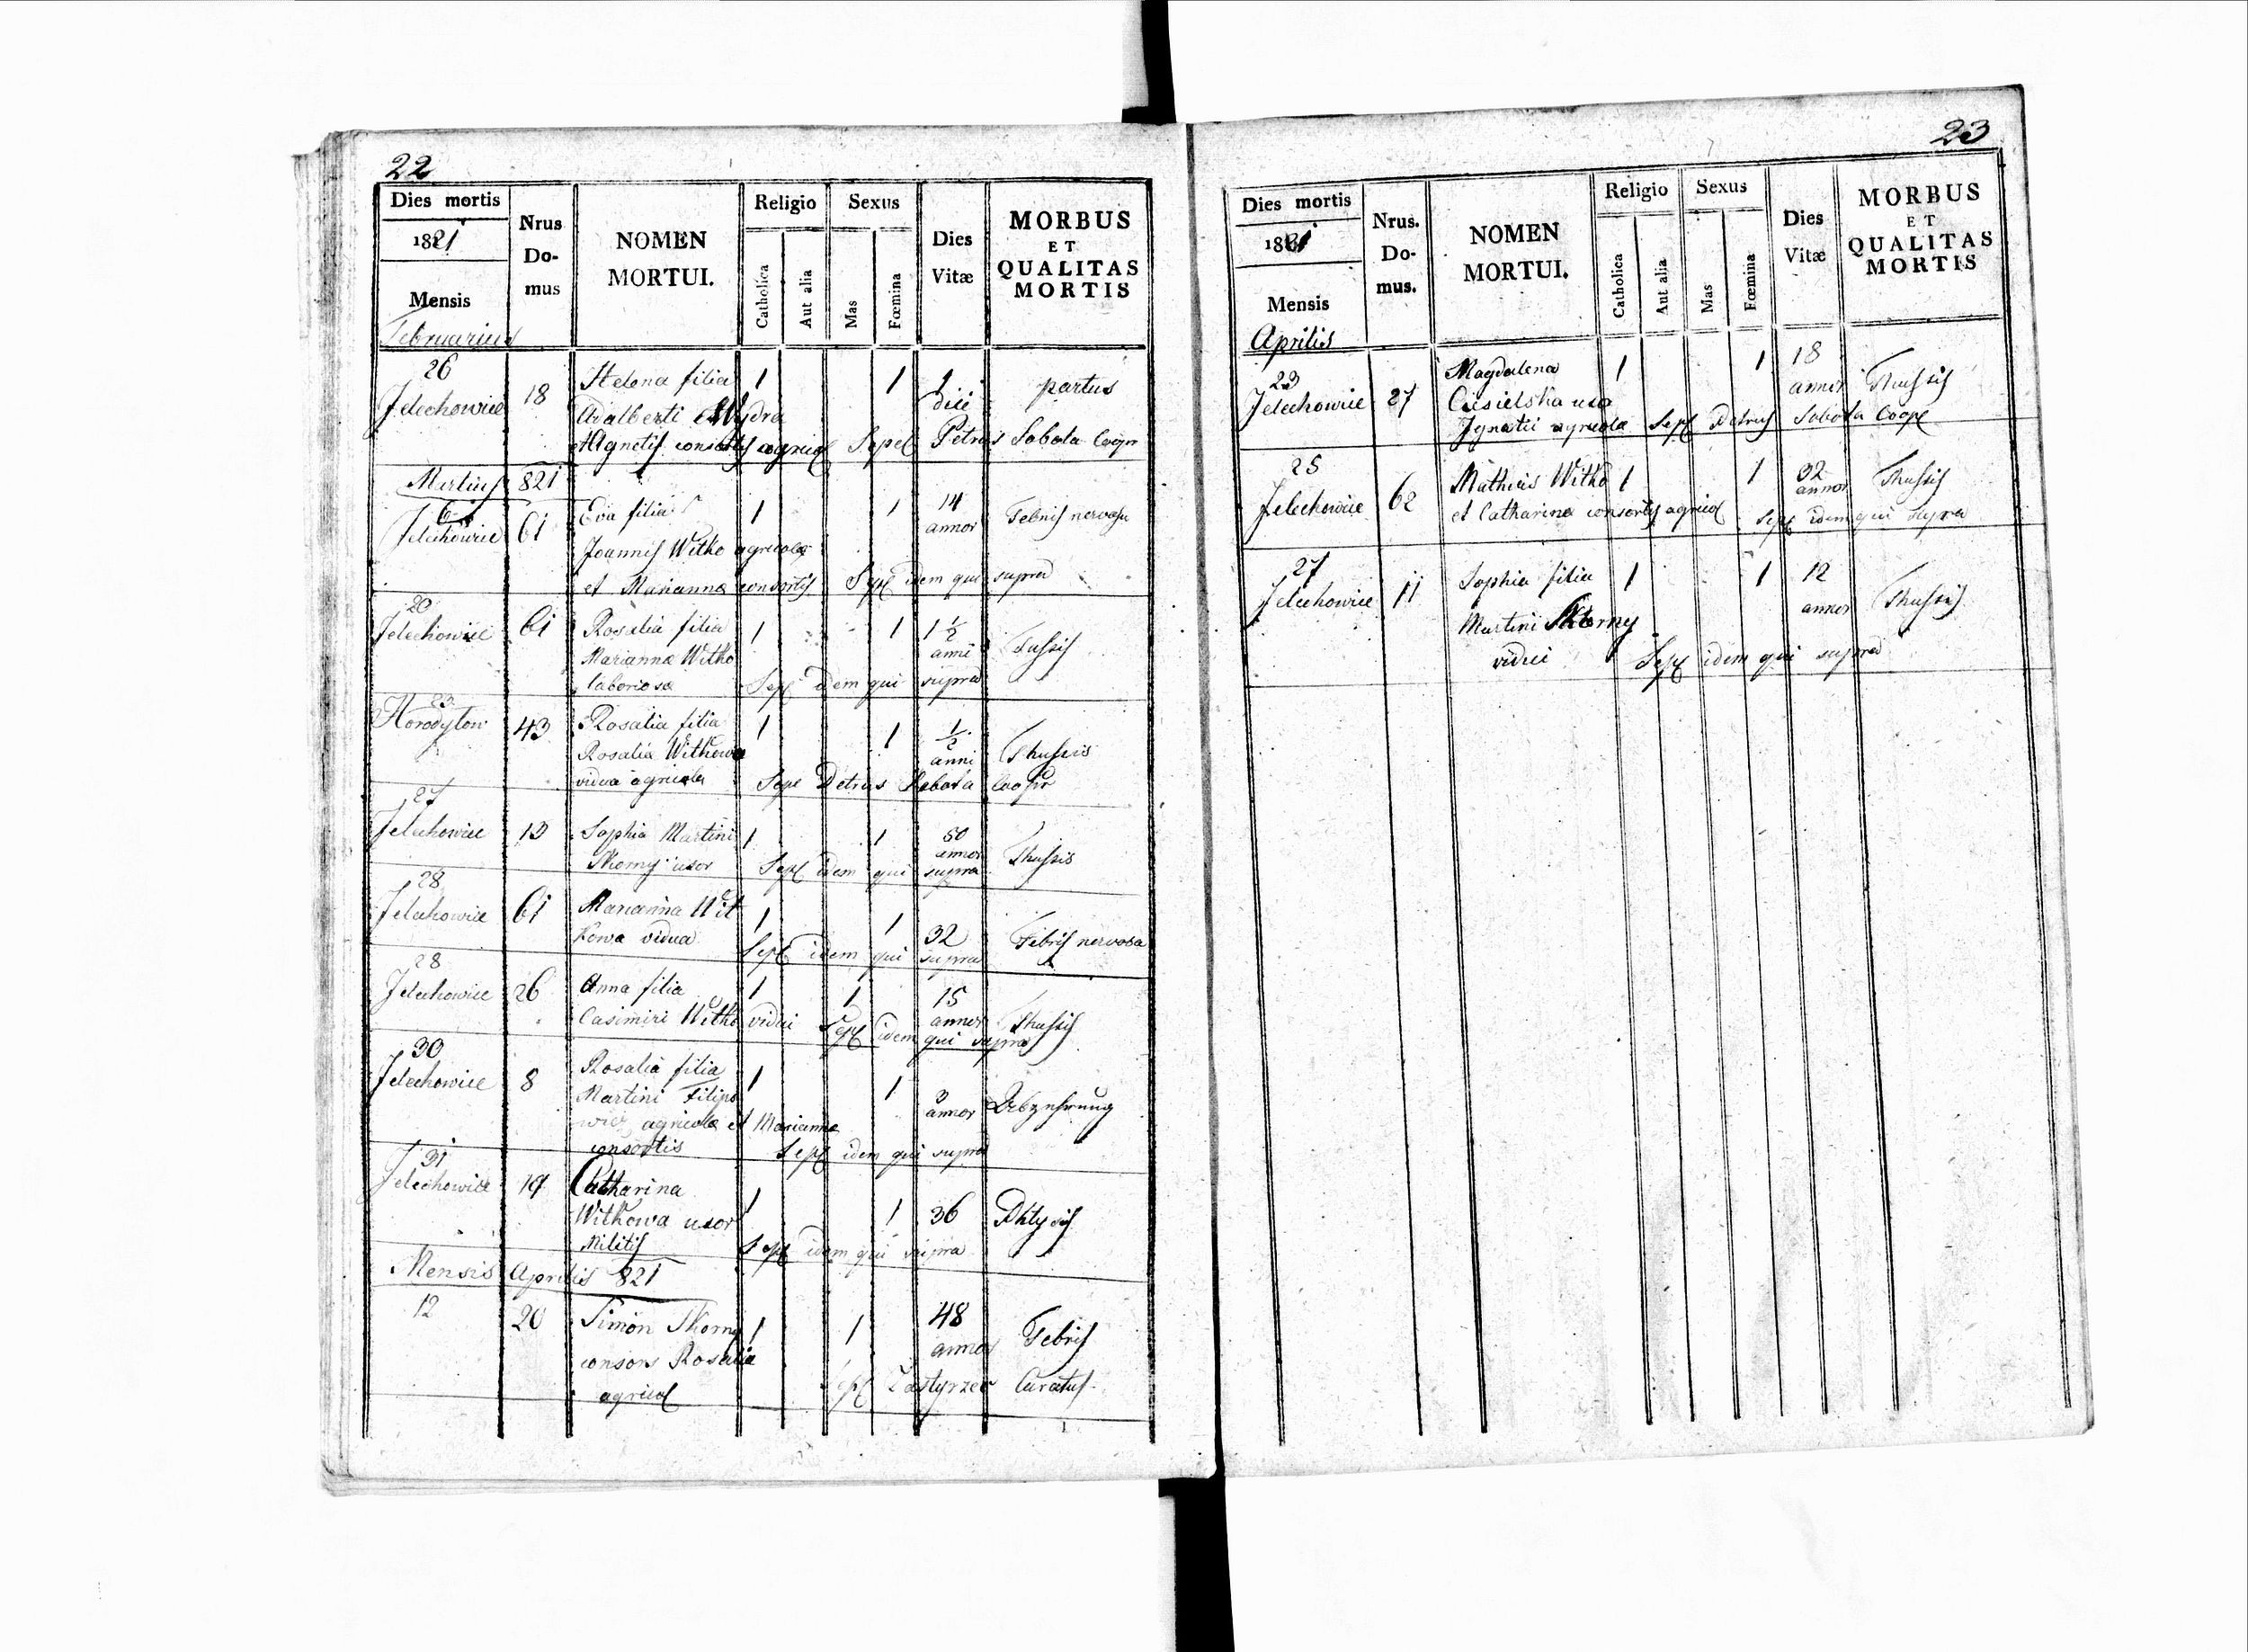 22
Dies mortis
1821
Mensis
Februarius
Nrus Do- mus
NOMEN MORTUI.
Religio
Catholica
Aut alia
Sexus
Mas
Fœmina
Dies Vitæ
MORBUS ET QUALITAS MORTIS
26 Jelechowice 18 Helena filia 1 1 1 diei partus
Adalberti Wydra
et Agnetis consortis agricol Sepel Petrus Sobota Coopr
Martius 821
6 Jelechowice 61 Eva filia 1 1 14 annor Febris nervosa
Joannis Witko agricolæ
et Mariannæ consortis Sepel idem qui supra
20 Jelechowice 61 Rosalia filia 1 1 1 1/2 anni Tussis
Mariannæ Witko
laboriosæ Sepel idem qui supra
23 Horodyłow 43 Rosalia filia 1 1 1/2 anni Thussis
Rosalia Witkowa
vidua agricola Sepel Petrus Sobota Coopr
27 Jelechowice 13 Sophia Martini 1 1 50 annor Thussis
Skorny uxor Sepel idem qui supra
28 Jelechowice 61 Marianna Wit 1 1 32 Febris nervosa
kowa vidua Sepel idem qui supra
28 Jelechowice 26 Anna filia 1 1 15 annor Thussis
Casimiri Witko vidui Sepel idem qui supra
30 Jelechowice 8 Rosalia filia 1 1 3 annor Abzehrung
Martini Filipo
wicz agricolæ et Mariannæ
consortis Sepel idem qui supra
31 Jelechowice 19 Catharina 1 1 36 Phtysis
Witkowa uxor
Militis Sepel idem qui supra
Mensis Aprilis 821
12 20 Simon Skorny 1 1 48 annor Febris
consors Rosalia
agricol Curatus
23
Dies mortis
1821
Mensis
Aprilis
Nrus. Do- mus.
NOMEN MORTUI.
Religio
Catholica
Aut alia
Sexus
Mas
Fœmina
Dies Vitæ
MORBUS ET QUALITAS MORTIS
23 Jelechowice 27 Magdalena 1 1 18 annor Thussis
Ciesielska uxor
Ignatii agricolæ Sepel Petrus Sobota Coope
25 Jelechowice 62 Mathias Witko 1 1 32 annor Thussis
et Catharina consortis agricol Sepel idem qui supra
27 Jelechowice 11 Sophia filia 1 1 12 annor Thussis
Martini Skorny
vidui Sepel idem qui supra